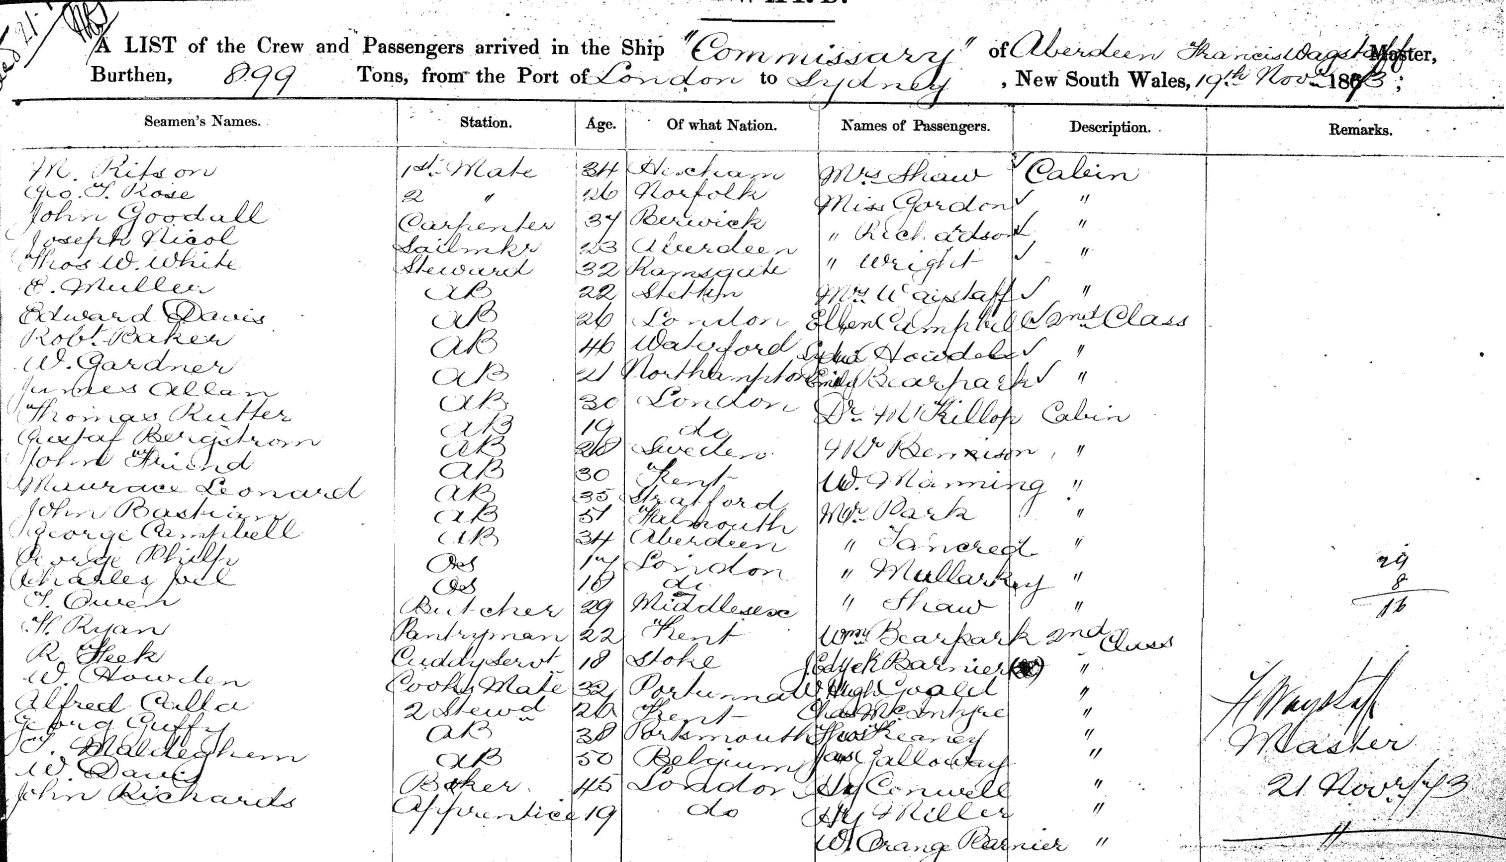 A LIST of the Crew and Passengers arrived in the Ship "Commissary" of Aberdeen Francis Wagstaff Master,
Burthen, 899 Tons, from the Port of London to Sydney, New South Wales, 19th Nov. 1873;
Seamen's Names. Station. Age. Of what Nation. Names of Passengers. Description. Remarks.
M. Ritson 1st Mate 34 Hexham Mrs Shaw ✓ Cabin
Geo. T. Rose 2 " 26 Norfolk Miss Gordon ✓ "
John Goodall Carpenter 37 Berwick " Richardson ✓ "
Joseph Nicol Sailmkr 23 Aberdeen " Wright ✓ "
Thos W. White Steward 32 Ramsgate Mrs Wagstaff ✓ "
E. Muller AB 22 Stettin Ellen Campbell ✓ 2nd Class
Edward Davis AB 26 London Howden ✓ "
Robt Baker AB 46 Waterford Emily Bearpark ✓ "
W. Gardner AB 21 Northampton Dr McKillop Cabin
James Allan AB 30 London Mr Bennison "
Thomas Rutter AB 19 do W. Manning "
Gustaf Bergstrom AB 28 Sweden Mr Park "
John Friend AB 30 Kent " Tancred "
Maurace Leonard AB 35 Stratford " Mullarkey "
John Bastian AB 51 Falmouth " Shaw "
George Campbell AB 34 Aberdeen Wm Bearpark 2nd Class
George Philp OS 17 London Barnier "
Charles OS 18 do Hugh Goald "
T. Owen Butcher 29 Middlesex Chas McIntyre "
H. Ryan Pantryman 22 Kent Thos Keaney "
R. Cuddy Servt 18 Stoke Jas Galloway "
W. Howden Cooks Mate 32 Portumna Hy Conwell "
Alfred 2 Stewd Kent Hy Miller "
Georg Guffy AB 38 Portsmouth W. Orange Barnier "
T. Maldeghem AB 50 Belgium
W. Davis Baker 45 London
John Richards Apprentice 19 do
29
8
16
F Wagstaff
Master
21 Novr /73
"